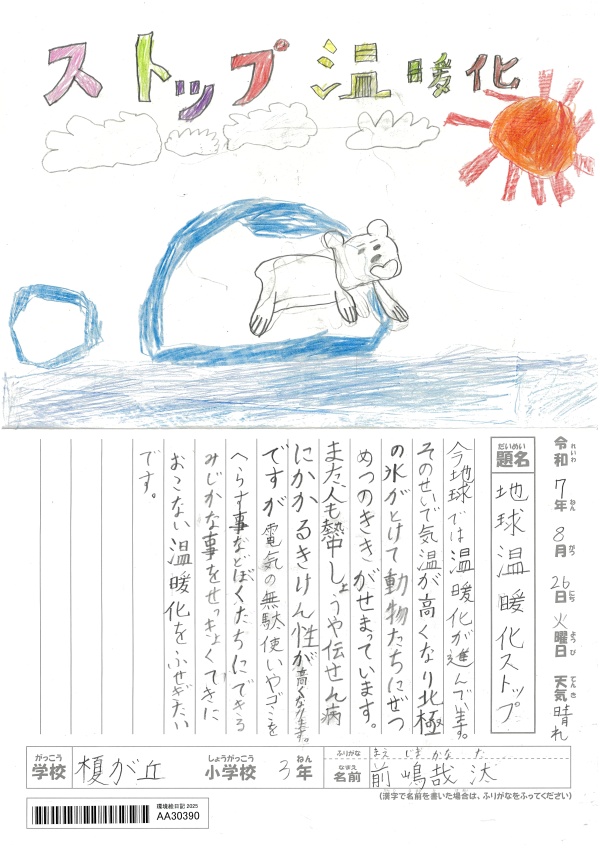 ストップ温暖化
令和7年8月26日火曜日 天気晴れ
れいわ ねん がつ にち ようび てんき
だいめい
題名 地球温暖化ストップ
今地球では温暖化が進んでいます。
そのせいで気温が高くなり北極
の氷がとけて動物たちにぜつ
めつのききがせまっています。
また人も熱中しょうや伝せん病
にかかるきけん性が高くなります。
ですが電気の無駄使いやゴミを
へらす事などぼくたちにできる
みじかな事をせっきょくてきに
おこない温暖化をふせぎたい
です。
がっこう しょうがっこう ねん
学校 榎が丘 小学校 3年
ふりがな まえ じま かな た
なまえ
名前 前嶋哉汰
(漢字で名前を書いた場合は、ふりがなをふってください)
環境絵日記 2025
AA30390